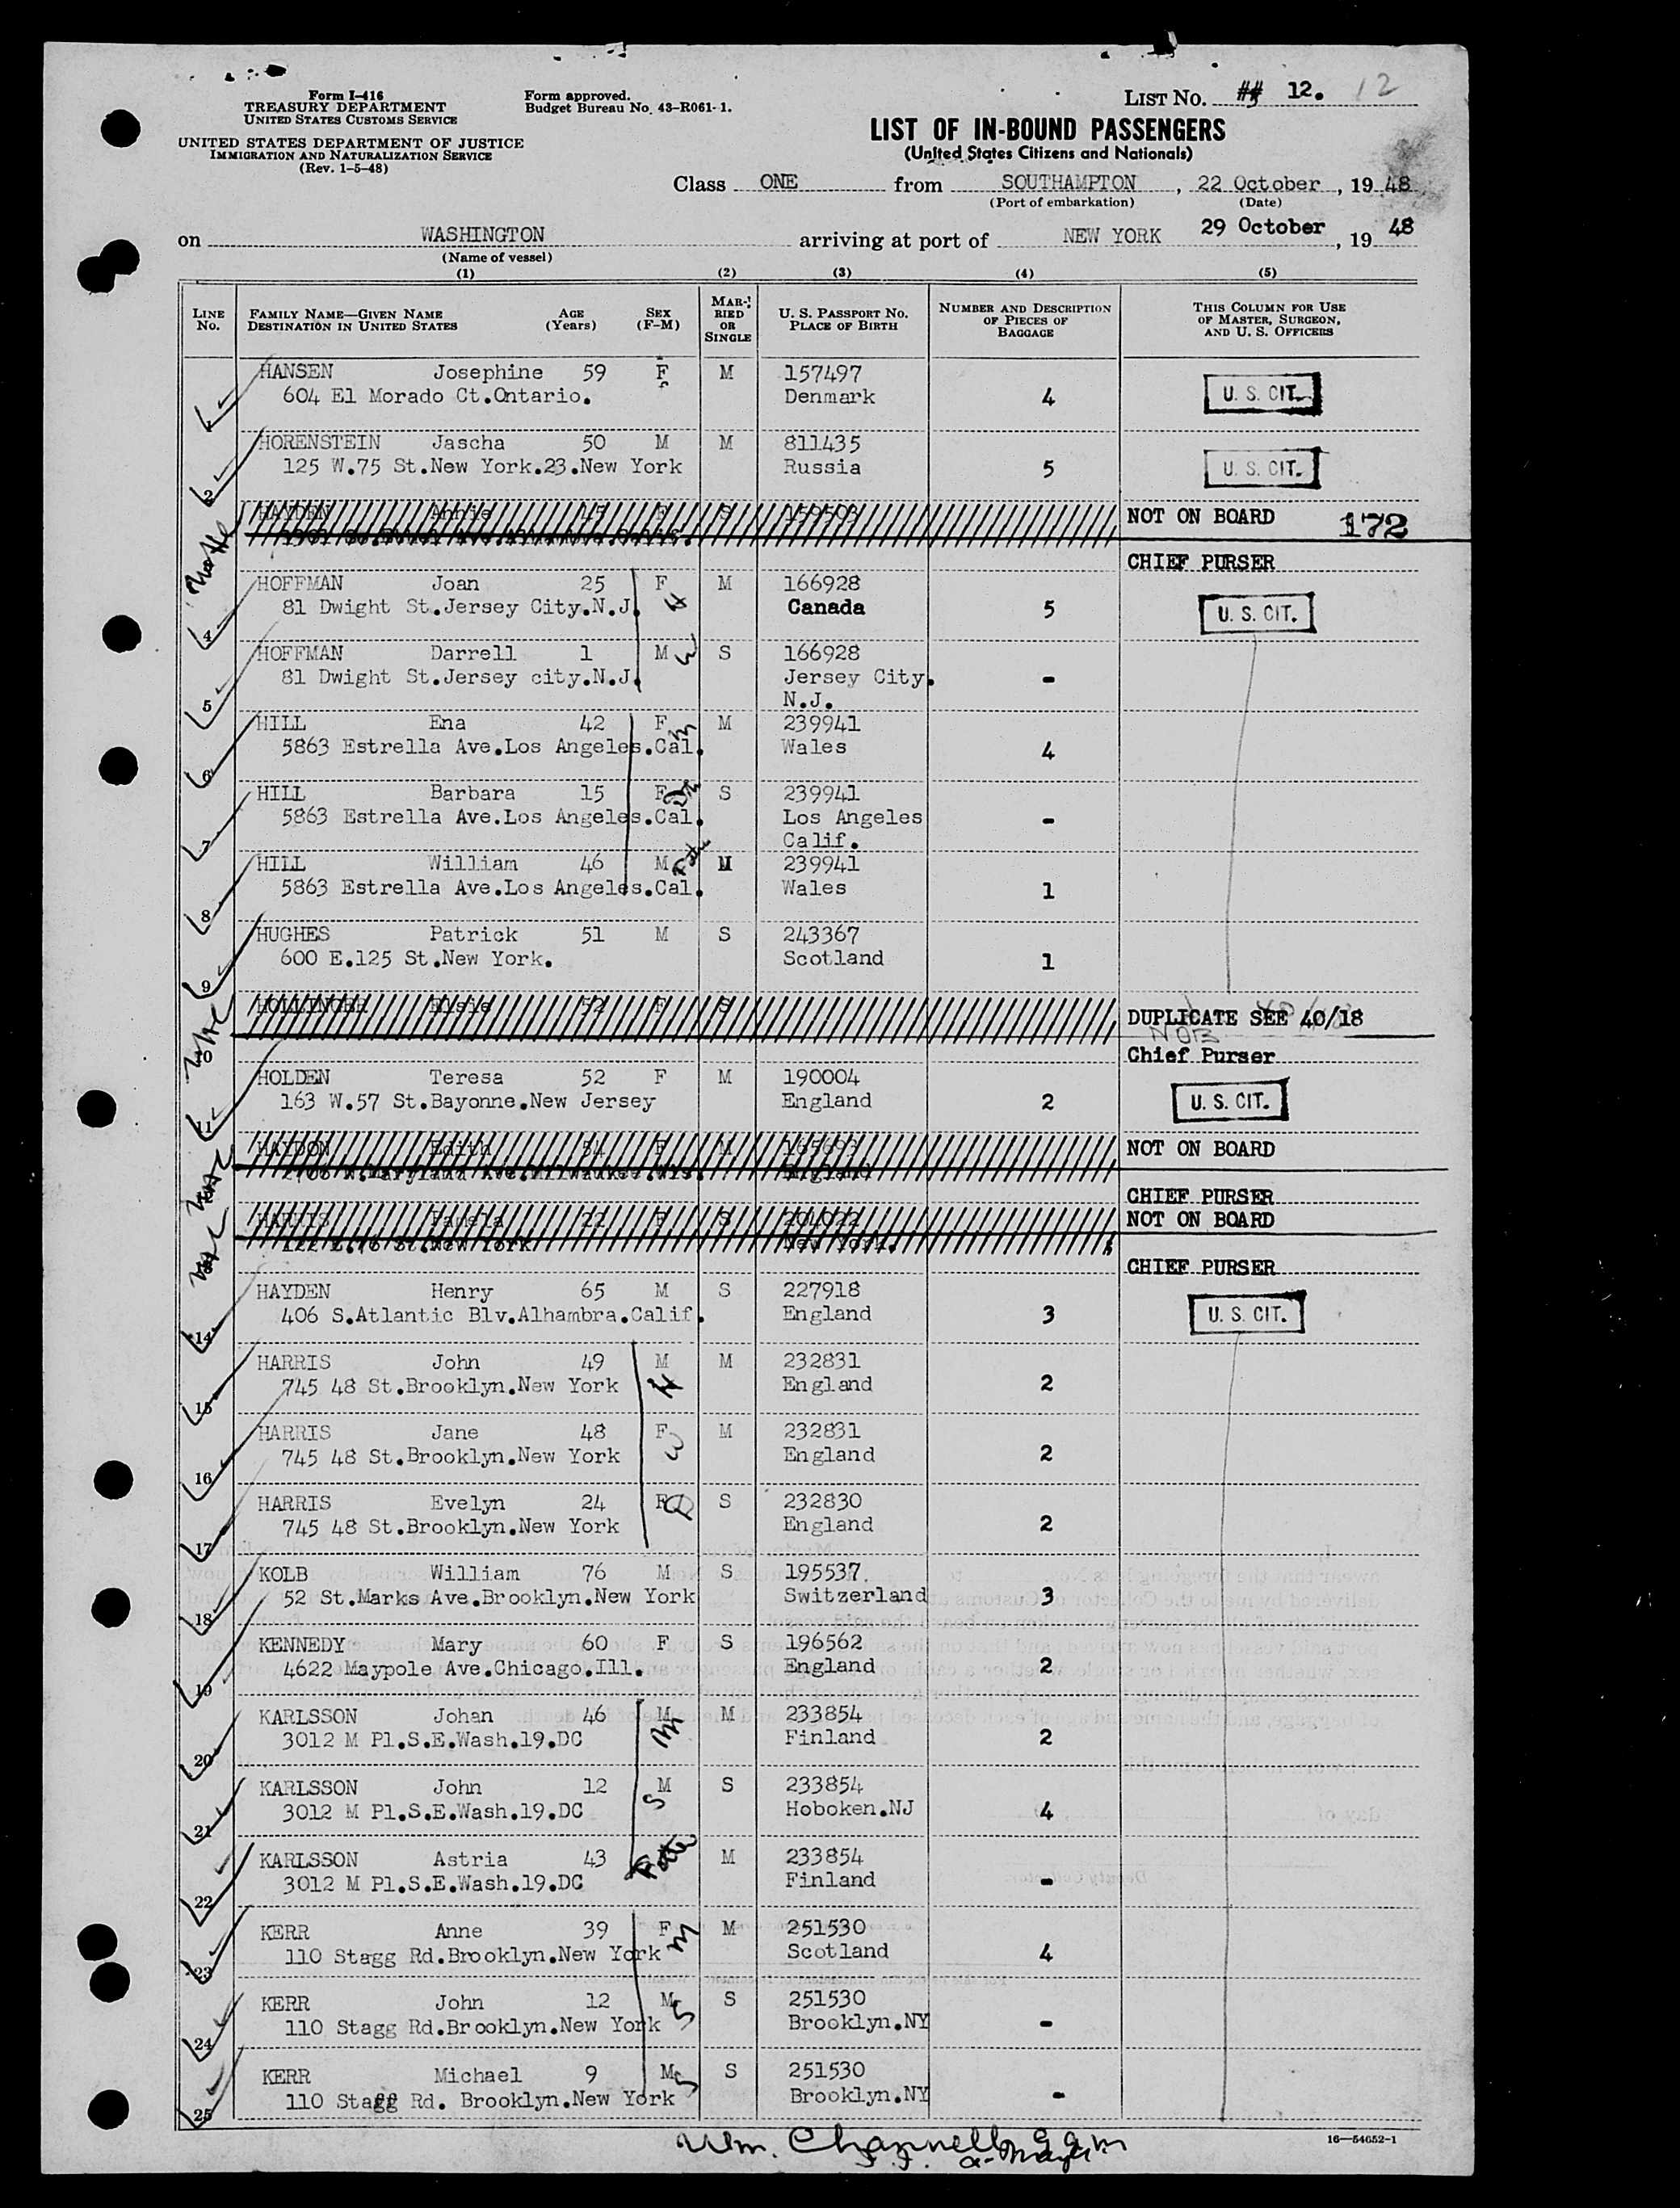 Form I-416
TREASURY DEPARTMENT
UNITED STATES CUSTOMS SERVICE
UNITED STATES DEPARTMENT OF JUSTICE
IMMIGRATION AND NATURALIZATION SERVICE
(Rev. 1-5-48)
Form approved.
Budget Bureau No. 43-R061-1.
LIST NO. 12. 12
LIST OF IN-BOUND PASSENGERS
(United States Citizens and Nationals)
Class ONE from SOUTHAMPTON, 22 October, 19 48
(Port of embarkation) (Date)
on WASHINGTON arriving at port of NEW YORK 29 October, 19 48
(Name of vessel)
(1) (2) (3) (4) (5)
LINE NO. FAMILY NAME—GIVEN NAME DESTINATION IN UNITED STATES AGE (Years) SEX (F-M) MARRIED OR SINGLE U. S. PASSPORT NO. PLACE OF BIRTH NUMBER AND DESCRIPTION OF PIECES OF BAGGAGE THIS COLUMN FOR USE OF MASTER, SURGEON, AND U. S. OFFICERS
HANSEN Josephine 59 F M 157497
1 604 El Morado Ct.Ontario. Denmark 4 U. S. CIT.
HORENSTEIN Jascha 50 M M 811435
2 125 W.75 St.New York.23.New York Russia 5 U. S. CIT.
HAYDEN Annie 45 F S 159503 NOT ON BOARD 172
CHIEF PURSER
HOFFMAN Joan 25 F M 166928
4 81 Dwight St.Jersey City.N.J. Canada 5 U. S. CIT.
HOFFMAN Darrell 1 M S 166928
5 81 Dwight St.Jersey city.N.J. Jersey City. -
N.J.
HILL Ena 42 F M 239941
6 5863 Estrella Ave.Los Angeles.Cal. Wales 4
HILL Barbara 15 F S 239941
7 5863 Estrella Ave.Los Angeles.Cal. Los Angeles -
Calif.
HILL William 46 M M 239941
8 5863 Estrella Ave.Los Angeles.Cal. Wales 1
HUGHES Patrick 51 M S 243367
9 600 E.125 St.New York. Scotland 1
HOLLINGER Elsie 52 F S DUPLICATE SEE 40/18
NOB
10 Chief Purser
HOLDEN Teresa 52 F M 190004
11 163 W.57 St.Bayonne.New Jersey England 2 U. S. CIT.
HAYDON Edith 54 F M 165693 NOT ON BOARD
2708 N.Maryland Ave.Milwaukee.Wis. England
CHIEF PURSER
HARRIS Pamela 22 F S 204022 NOT ON BOARD
122 E.76 St.New York New York.
CHIEF PURSER
HAYDEN Henry 65 M S 227918
14 406 S.Atlantic Blv.Alhambra.Calif. England 3 U. S. CIT.
HARRIS John 49 M M 232831
15 745 48 St.Brooklyn.New York England 2
HARRIS Jane 48 F M 232831
16 745 48 St.Brooklyn.New York England 2
HARRIS Evelyn 24 F S 232830
17 745 48 St.Brooklyn.New York England 2
KOLB William 76 M S 195537
18 52 St.Marks Ave.Brooklyn.New York Switzerland 3
KENNEDY Mary 60 F S 196562
19 4622 Maypole Ave.Chicago.Ill. England 2
KARLSSON Johan 46 M M 233854
20 3012 M Pl.S.E.Wash.19.DC Finland 2
KARLSSON John 12 M S 233854
21 3012 M Pl.S.E.Wash.19.DC Hoboken.NJ 4
KARLSSON Astria 43 M 233854
22 3012 M Pl.S.E.Wash.19.DC Finland -
KERR Anne 39 F M 251530
23 110 Stagg Rd.Brooklyn.New York Scotland 4
KERR John 12 M S 251530
24 110 Stagg Rd.Brooklyn.New York Brooklyn.NY -
KERR Michael 9 M S 251530
25 110 Stagg Rd. Brooklyn.New York Brooklyn.NY -
Wm.
16—54652-1